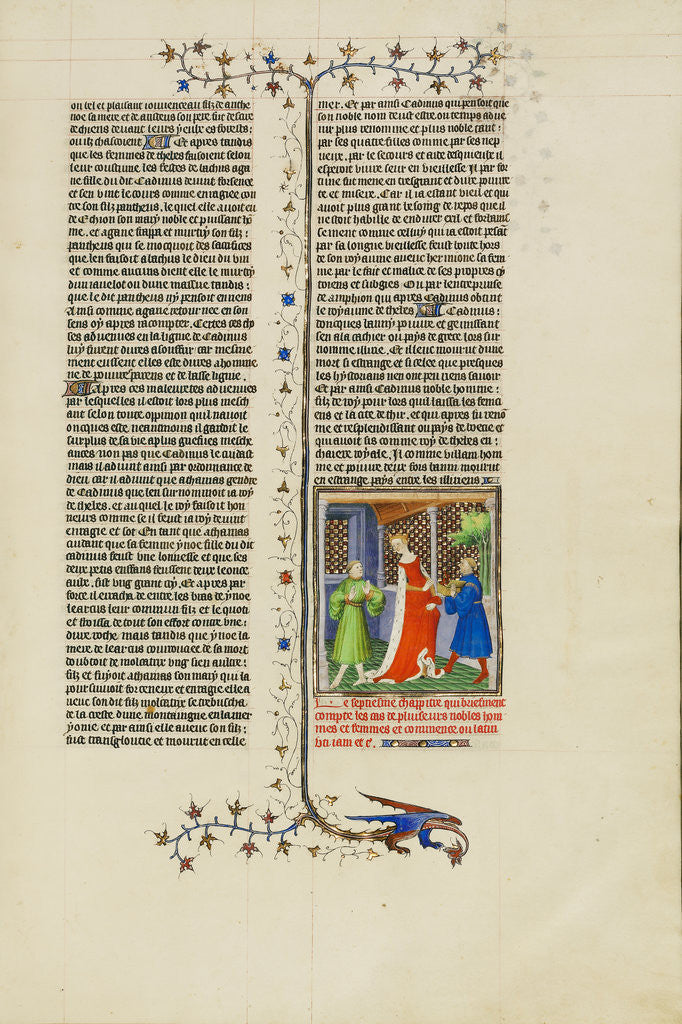 ou bel et plaisant iouvenceau filz de anthe
noe sa mere et de austeus son pere fut deſcire
de chiens devant leurs yeulx es forests :
ou ilz chasſoient Et apres tandis
que les femmes de thebes faisoient selon
leur coustume les festes de bachus aga
ne fille du dit Cadmus devint forsenee
et sen vint le cours comme enragiee con
tre son filz pantheus . le quel elle avoit eu
de Echion son mary noble et puissant hõ
me . et agane frappa et murtry son filz :
pantheus qui se mocquoit des sacrifices
que len faisoit a bachus le dieu du vin
et comme aucuns dient elle le murtry
dun iavelot ou dune massue tandis :
que le dit pantheus ny pensoit en riens
Ainsi comme agane retournee en son
sens oy apres racompter . Certes ses cho
ses advenues en la ligne de Cadmus
luy furent dures a souffrir car mesme
ment eussent elles este dures a homme
ne de povres parens et de basse lignie .
Apres ces maleurtes advenues
par lesquelles il estoit lors plus mesch
ant selon toute oppinion quil navoit
oncques este . neantmoins il gardoit le
surplus de sa vie a plus griefves mesch
ances non pas que Cadmus le cuidast
mais il advint ainsi par ordonnance de
dieu . car il advint que athamas gendre
de Cadmus que len surnommoit ia roy
de thebes . et auquel le roy faisoit hon
neurs comme se il feust ia roy devint
enragie et sot En tant que athamas
cuidant que sa femme ynoe fille du dit
cadmus feust une lyonnesse et que ses
deux petis enffans feussent deux leonce
aulx . fist ung grant cry . Et apres par
force il erracha de entre les bras de ynoe
learcus leur commun filz et le quoti
et froissa de tout son effort contre une :
dure roche mais tandis que ynoe la
mere de learcus courroucee de sa mort
doubtoit de molcarter ung sien aultre :
filz et fuyoit athamas son mary qui la
poursuivoit forcenez et enragie elle a
uecque son dit filz molcarter se trebuscha
de la creste dune montaingne en la mer
yonie . et par ainsi elle avec son filz :
fust transgloutie et mourut en celle
mer . Et par ainsi Cadmus qui pensoit que
son noble nom deust estre ou temps adve
nir plus renomme et plus noble tant :
par ses quatre filles comme par ses nep
veux . par le secours et aide desquieulx il
esperoit vivre seur en vieillesse Il par for
tune fut mene en tresgrant et dure povrete
et misere . Car il ia estant vieil et qui
avoit plus grant besoing de repos que il
ne estoit habille de endurer exil et fortains
sement comme celluy qui ia estoit pesant
par sa longue vieillesse feust boute hors
de son royaume avecques hermione sa fem
me par le fait et malice de ses propres cy
toiens et subgies Ou par lentreprinse
de amphion qui apres Cadmus obtint
le royaume de thebes Cadmus :
doncques banny povre et gemissant
sen ala cachier ou pays de grece lors sur
nomme illirie . Et illeuc mourut dune
mort si estrange et si celee que presques
les hystoriens nen ont peu riens savoir
Et par ainsi Cadmus noble homme :
filz de roy pour lors qui laissa les fenici
ens et la cite de thir . et qui apres fu renõ
me et resplendissant ou pays de boecie et
qui avoit sis comme roy de thebes en :
chaiere royale . Il comme villain hom
me et povre deux fois banni mourut
en estrange pays entre les illiriens
Le septiesme chappitre qui briefment
compte les cas de pluseurs nobles hom
mes et femmes et commence ou latin